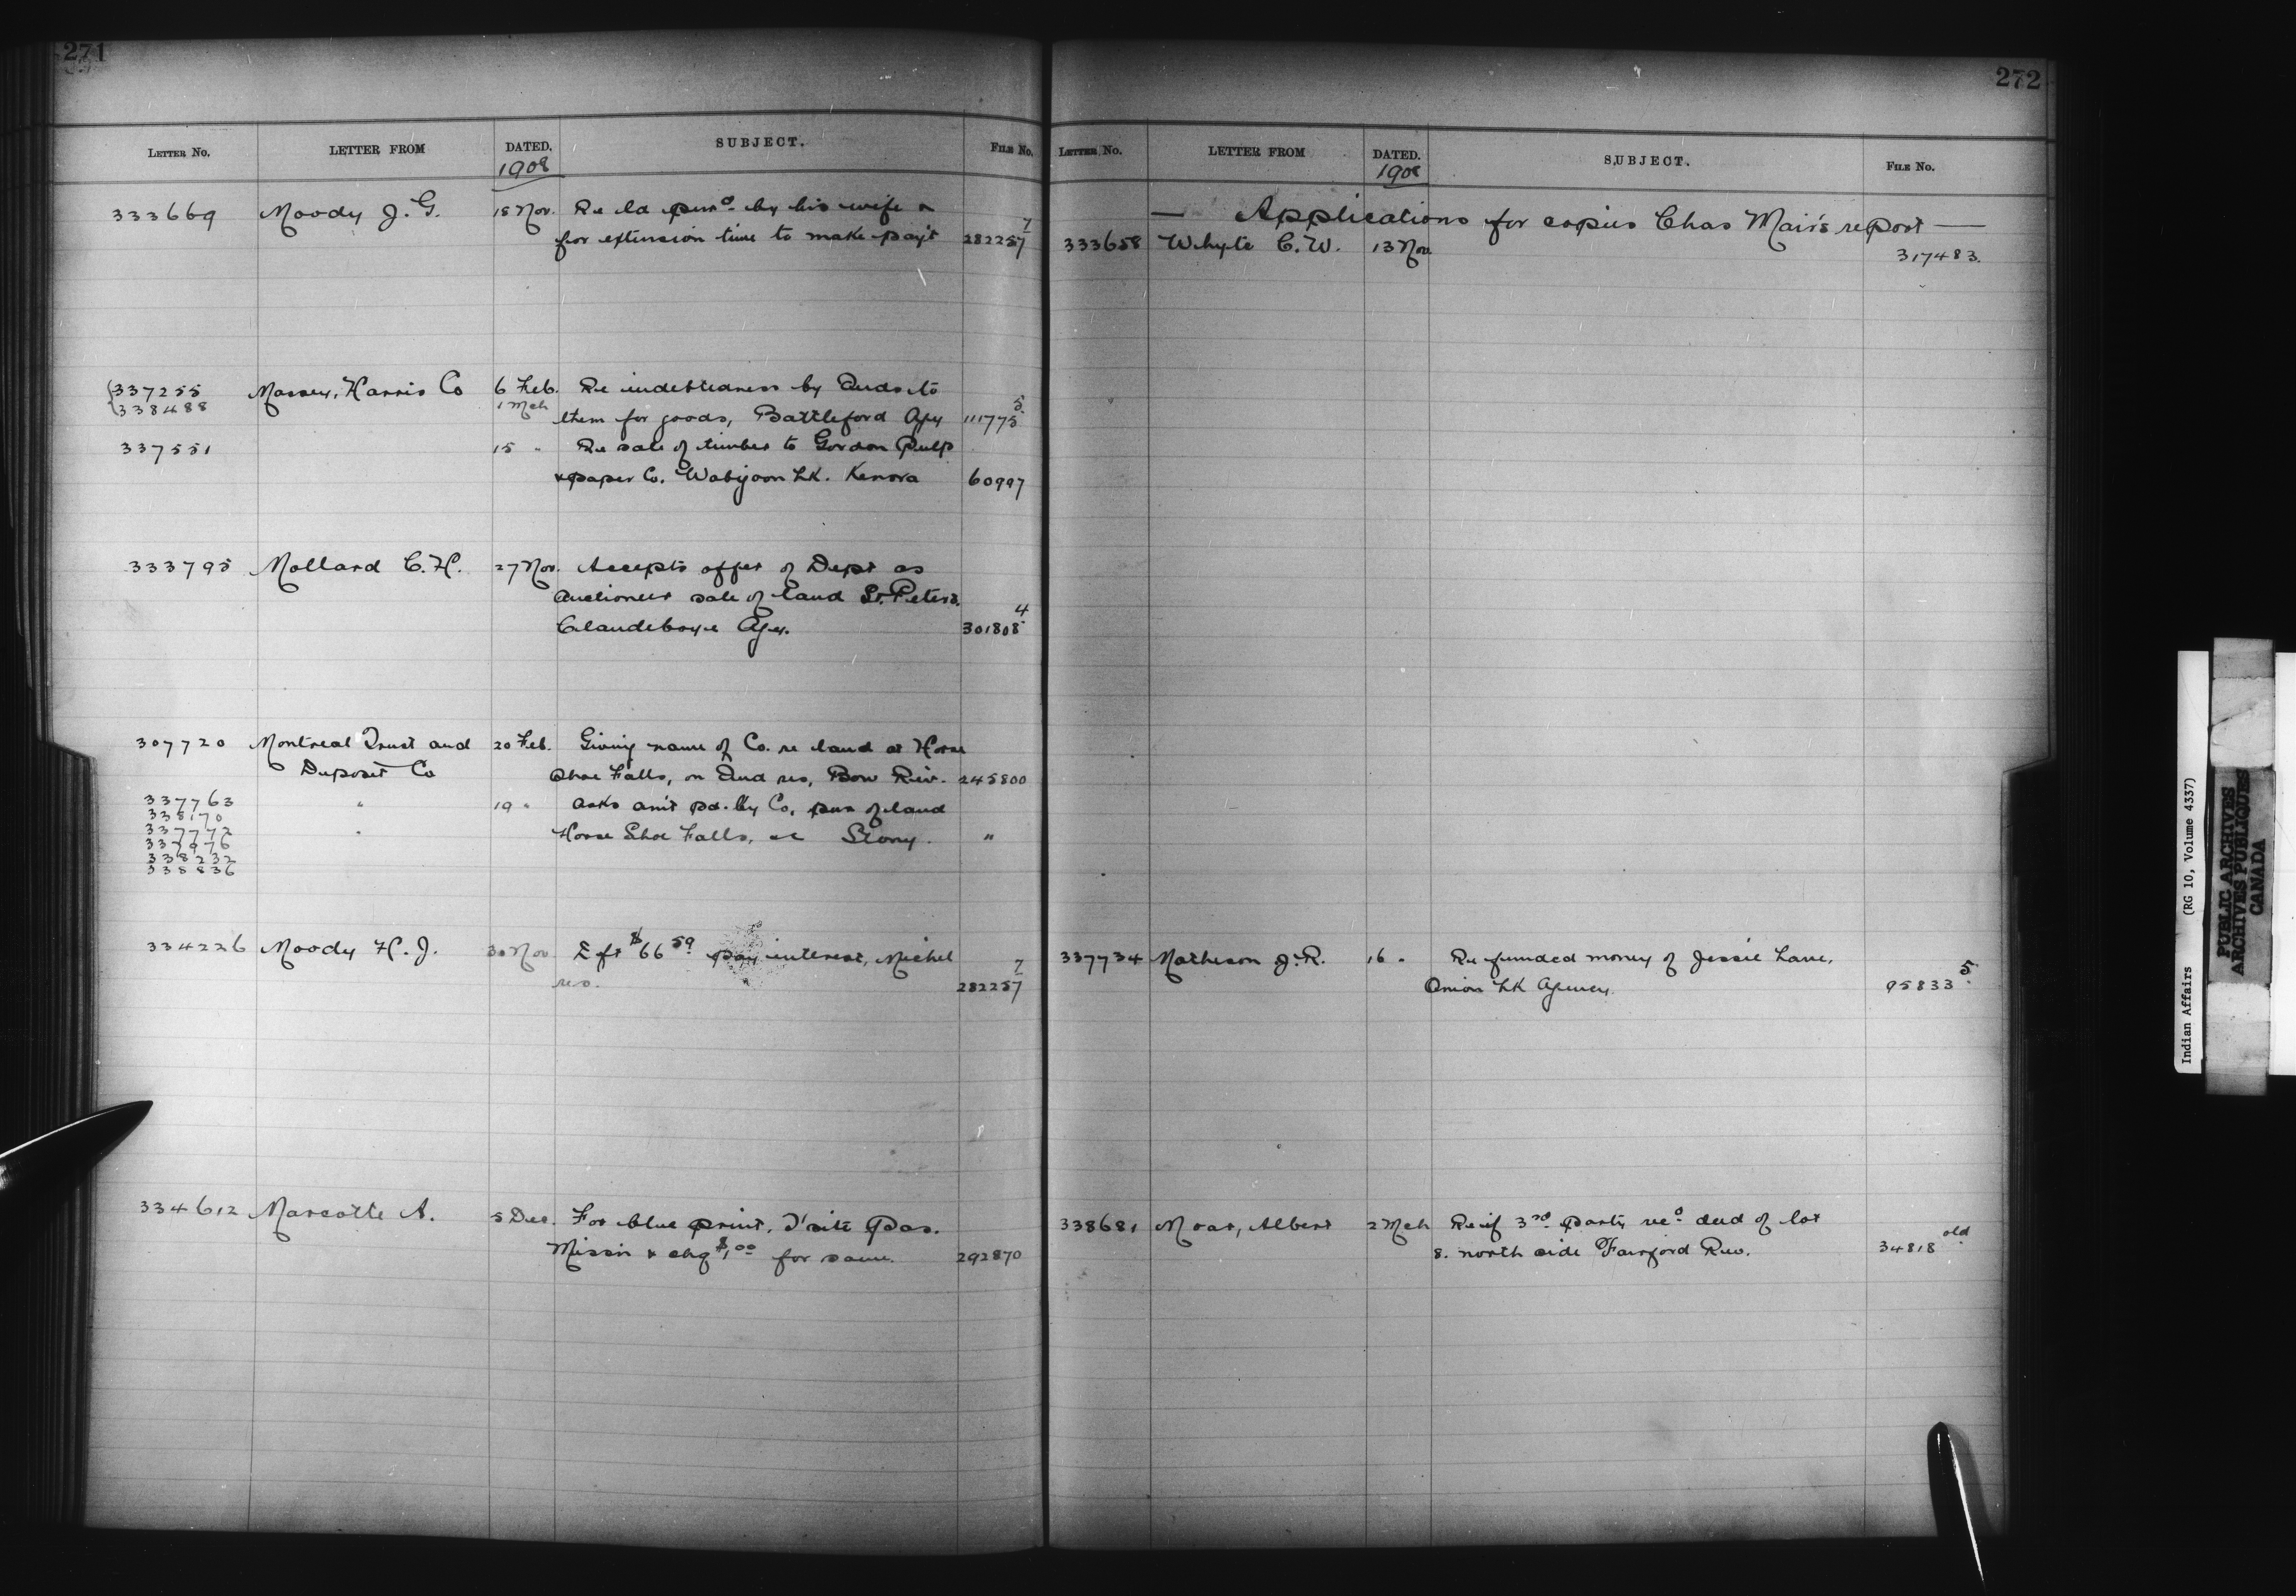 271
LETTER No. LETTER FROM DATED. SUBJECT. FILE No.
1908
333669 Moody J. G. 18 Nov. Re ld purd by his wife &
for extension time to make pay't 282257 7
{337255 Massey, Harris Co 6 Feb. Re indebtedness by Inds to
{338488 1 Mch them for goods, Battleford Agy 111775 5
337551 15 " Re sale of timber to Gordon Pulp
& paper Co. Wabigoon Lk. Kenora 60997
333795 Mollard C. H. 27 Nov. Accepts offer of Dept as
auctioneer sale of land St. Peters.
Clandeboye Agy. 301808 4
307720 Montreal Trust and 20 Feb. Giving name of Co. re land at Horse
Deposit Co Shoe Falls, on Ind res, Bow Riv. 245800
337763 " 19 " Asks am't pd. by Co. pur of land
338170
337772 " Horse Shoe Falls, Stony. "
337976
338232
338836
334226 Moody H. J. 30 Nov Dft $66 59 pay interest, Michel
res. 282257 7
334612 Marcotte A. 5 Dec. For blue print, T'site Pas.
Miss'n & chq $1.00 for same. 292870
272
LETTER No. LETTER FROM DATED. SUBJECT. FILE No.
1908
— Applications for copies Chas Mair's report —
333658 Whyte C. W. 13 Nov. 317483.
337734 Matheson J. R. 16 " Re funded money of Jessie Lane,
Onion Lk Agency. 95833 5
338681 Moar, Albert 2 Mch Re if 3rd party recd deed of lot
8. north side Fairford Riv. 34818 old
Indian Affairs (RG 10, Volume 4337)
PUBLIC ARCHIVES
ARCHIVES PUBLIQUES
CANADA